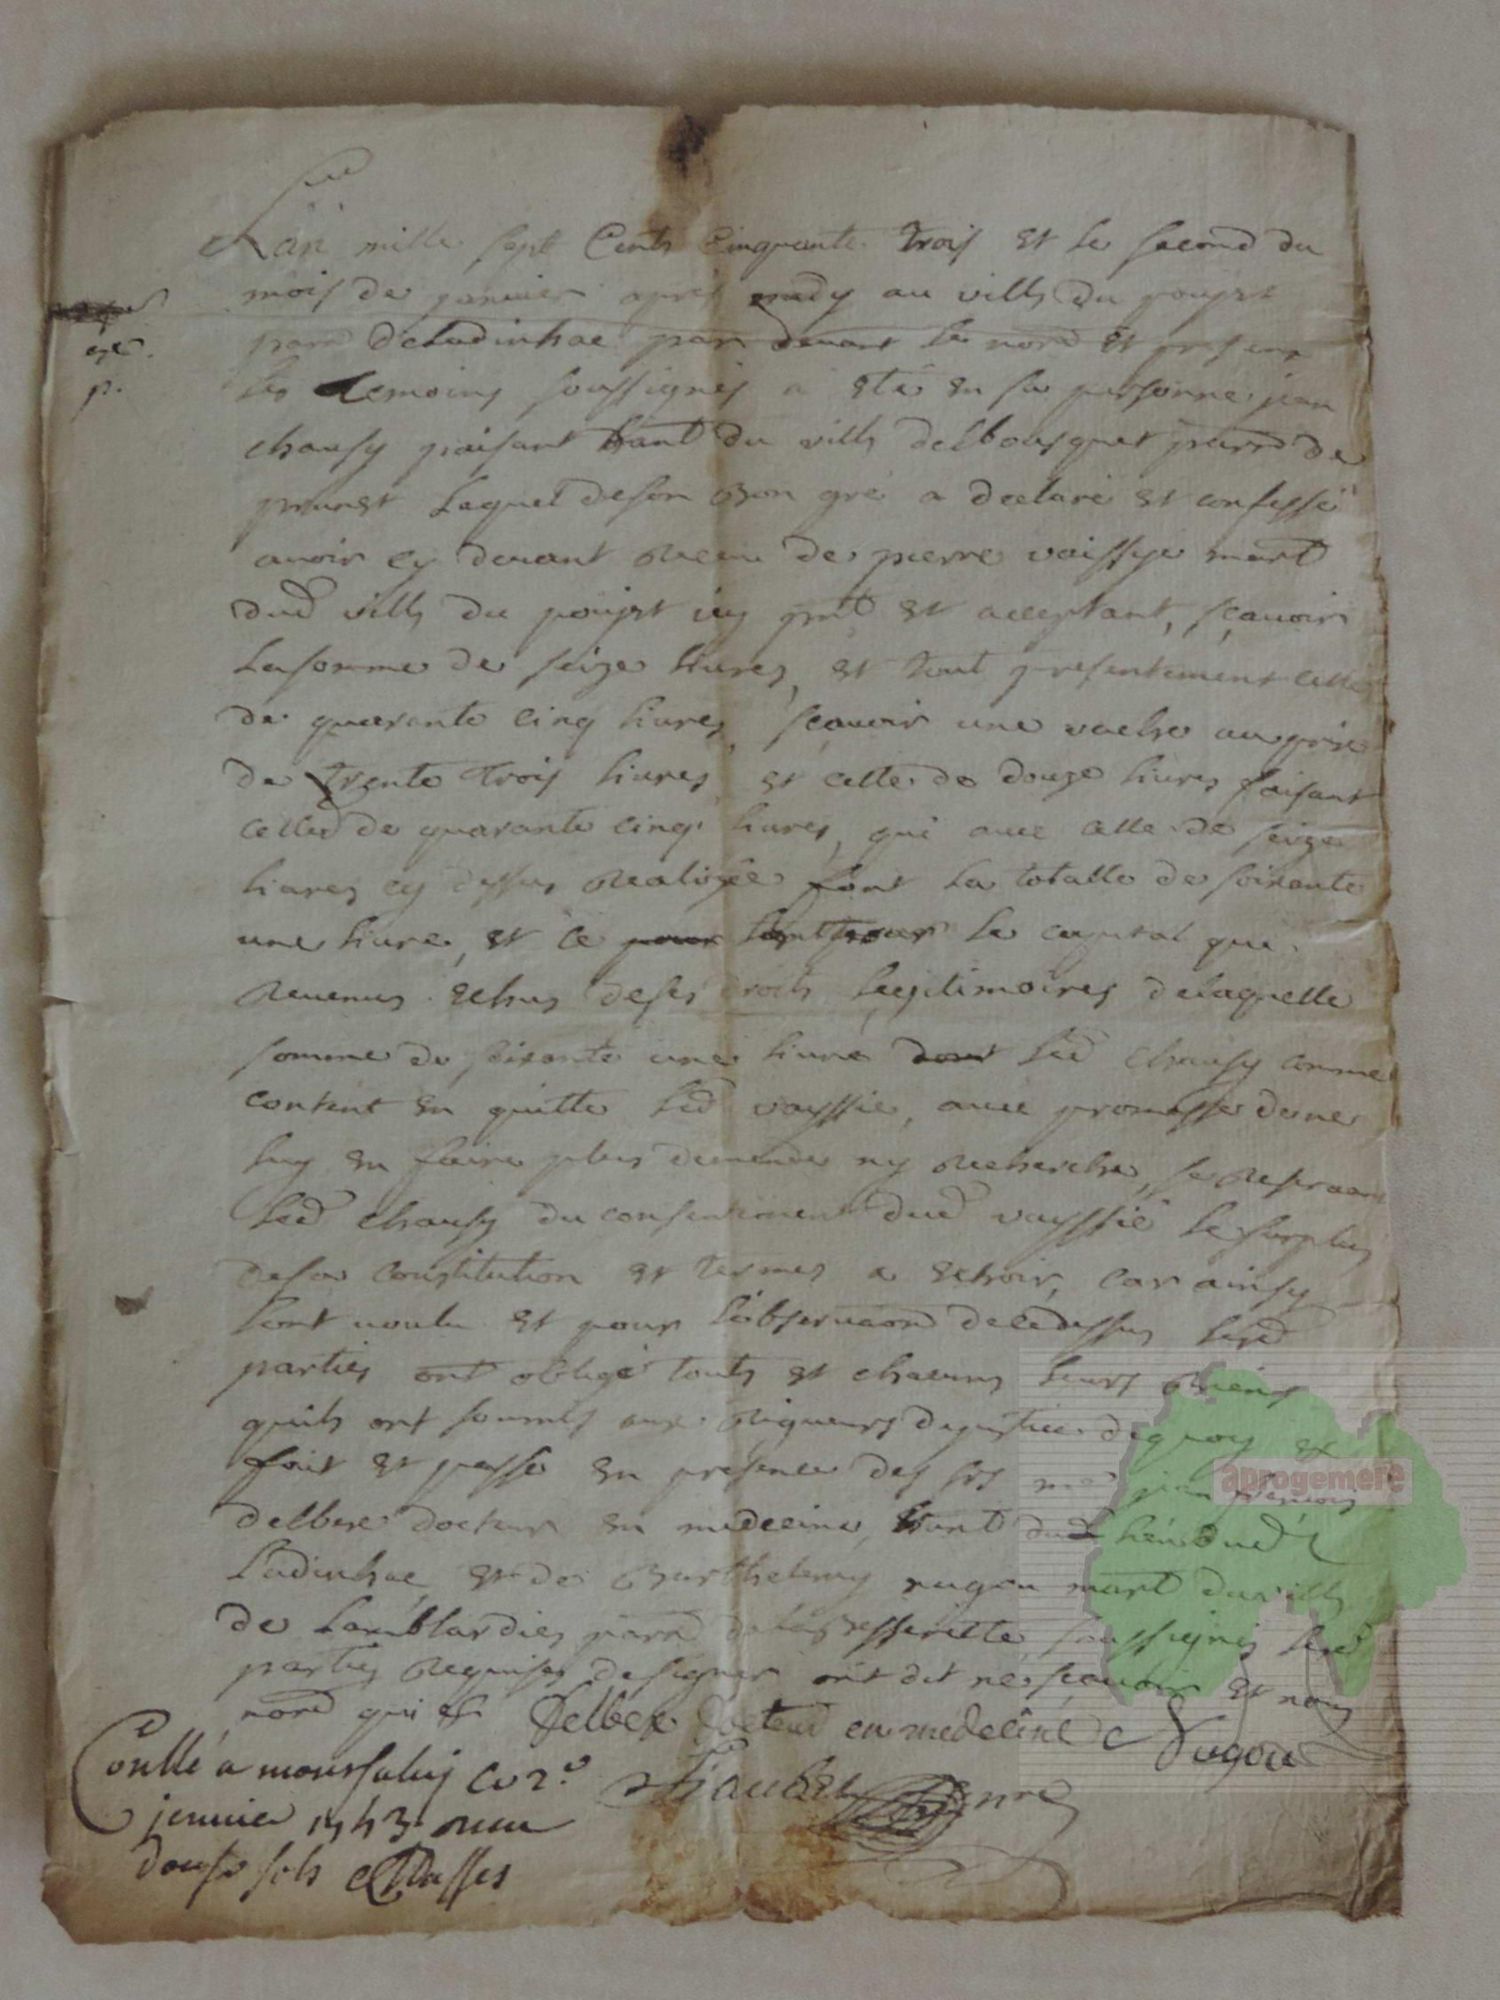 L'an mille sept Cents Cinquante trois et le second du
mois de janvier apres midy au villa du poujet
parr. de Ladinhac par devant le nore et presens
les temoins soussignés a été en sa personne jean
chausy paisant hant du villa delbousquet parr. de
prunet Lequel de son Bon gré a declaré et confessé
avoir cy devant Receu de pierre vaissye mart
dud villa du poujet icy pnt et acceptant, sçavoir
La somme de seize livres, et tout presentement celle
de quarante cinq livres, sçavoir une vache au prix
de trente trois livres et celle de douze livres faisant
celled de quarante cinq livres, qui avec celle de seize
livres cy dessus Realisée font la totalle de soixante
une livre, et ce le capital que
Revenus echus de ses droits legitimoires delaquelle
somme de soixante une livre led chausy comme
content en quitte led vayssie, avec promesse de ne
luy en faire plus demende ny Recherche, se Reservant
led chausy du consentement dud vayssié le surplus
de sa constitution et termes a echoir, car ainsy
l'ont voulu et pour l'observaon de cedessus lesd
parties ont obligé touts et chacuns leurs Biens
quils ont soumis aux Rigueurs de justice dequoy &
fait et passé en presence des srs jean
delbex docteur en medecine, hant dud lieu dud
Ladinhac, et de Barthelemy nugou mart du villa
de Lamblardies parr de soussignés lesd
parties Requises de signer ont dit ne sçavoir et nous
nore qui &
Delbex docteur en medecine Nugou
nre
Conllé a monsalvy ce 2e
janvier Receu
douse sols
aprogemere